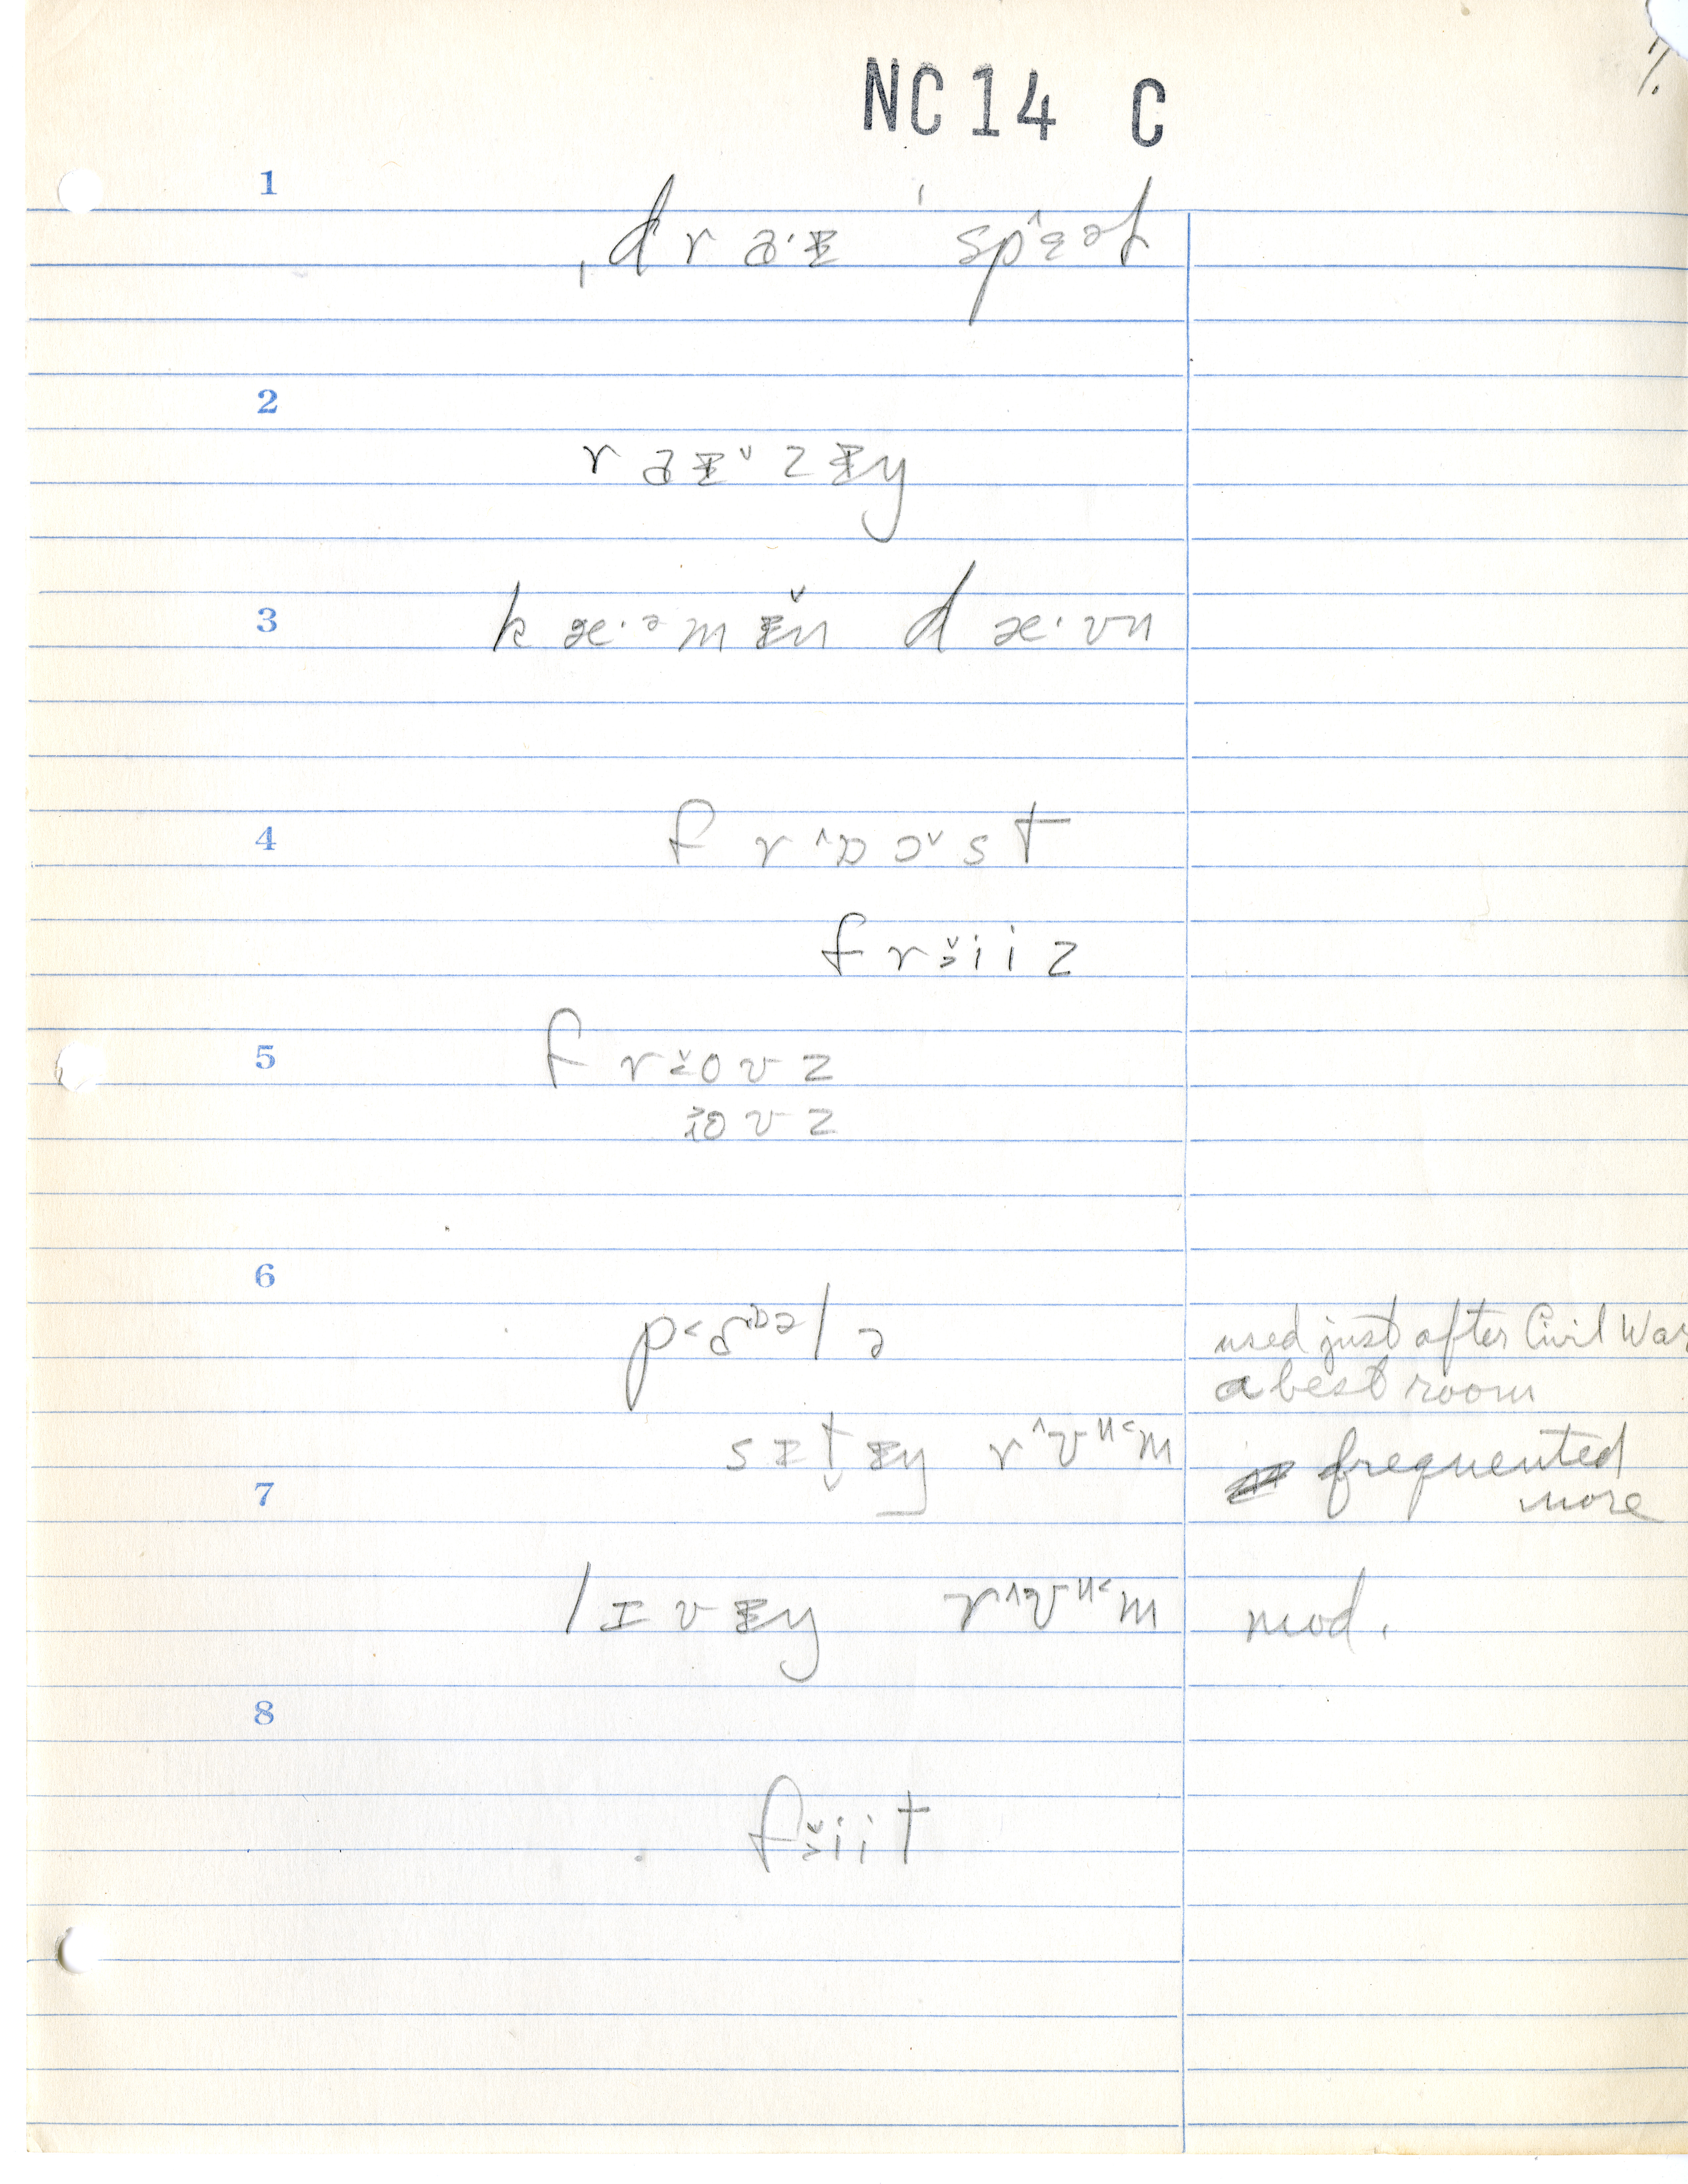 7.
NC 14 C
1
ˌdraˑɪ ˈspɛət
2
raɪzɪŋ
3
kæˑəmɪn dæˑʊn
4
frɒɔst
friiz
5
froʊz
oʊz
6
pɑɒələ
used just after Civil War
a best room
sɪt̬ɪŋ rʊum
frequented
more
7
lɪvɪŋ rʊum
mod.
8
fiit